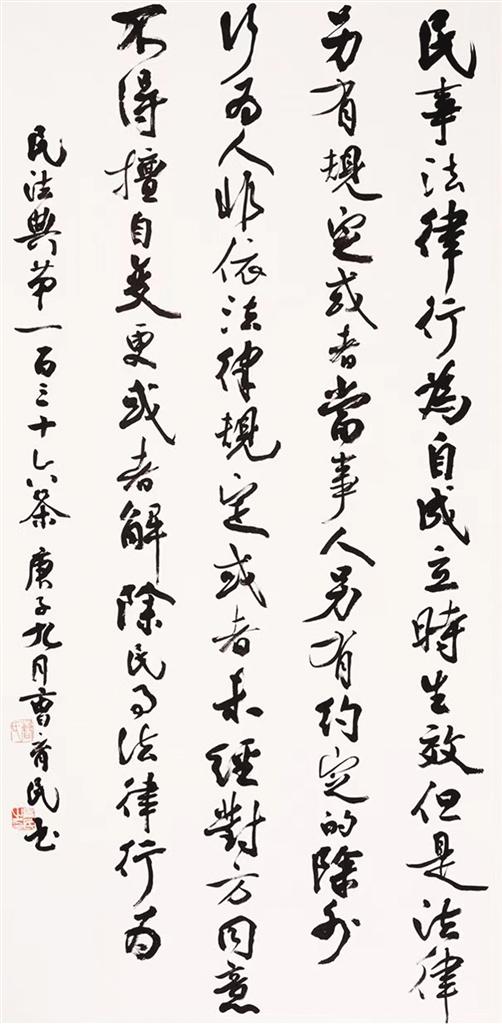 民事法律行為自成立時生效但是法律
另有規定或者當事人另有約定的除外
行为人非依法律規定或者未經對方同意
不得擅自变更或者解除民事法律行为
民法典第一百三十六条 庚子九月曹育民书